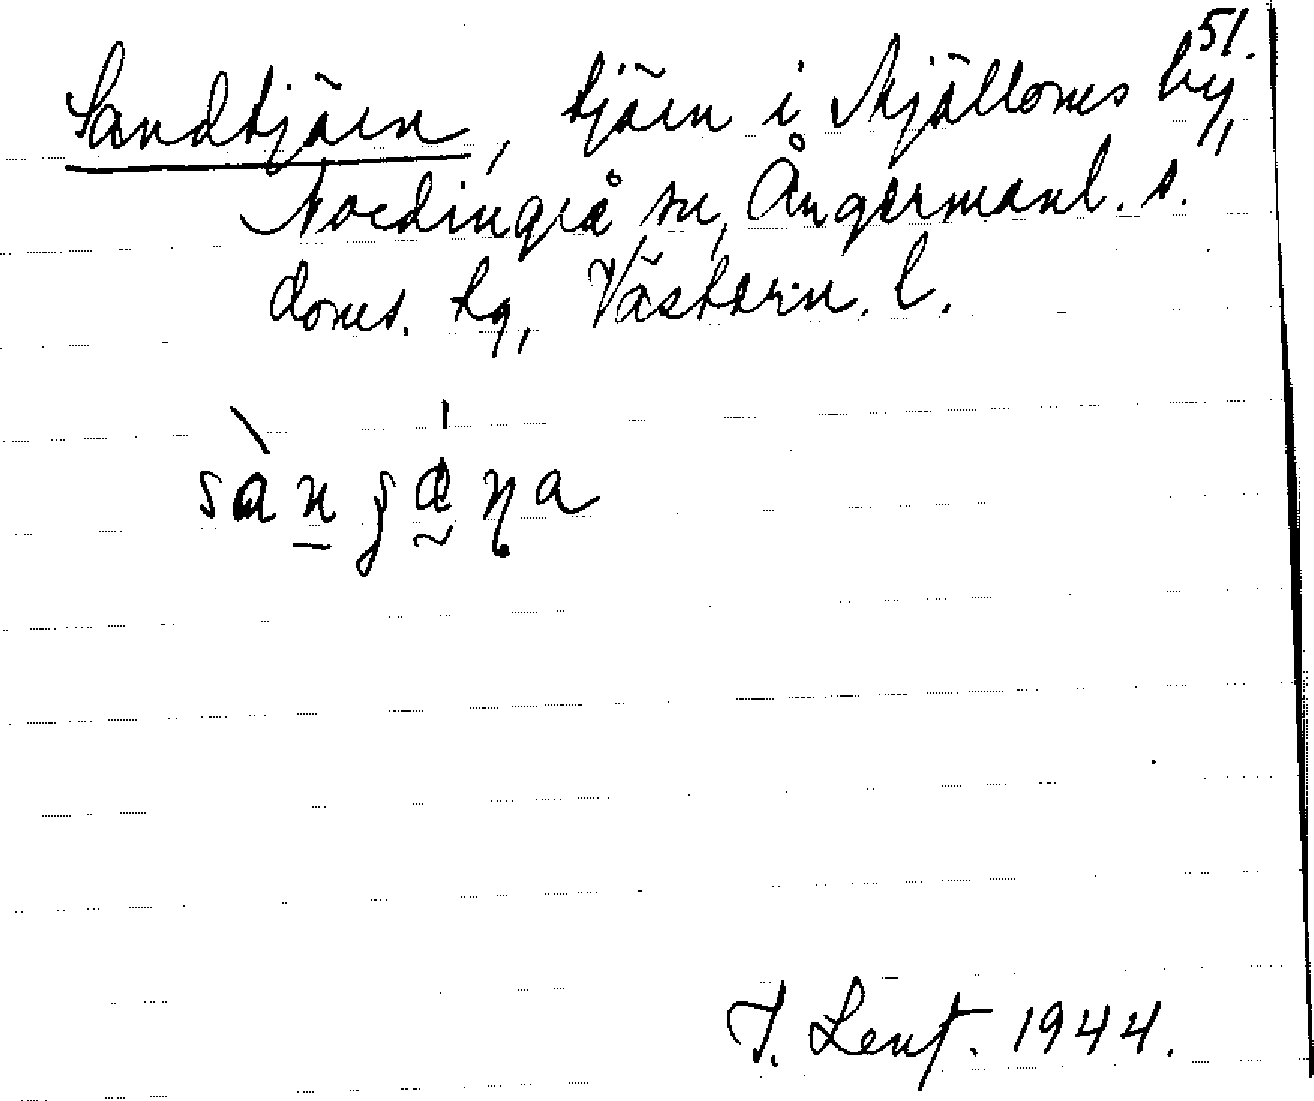 51.
Sandtjärn, tjärn i Mjälloms by,
Nordingrå sn, Ångermanl. s.
doms. tg, Västern. l.
J. Lent. 1944.